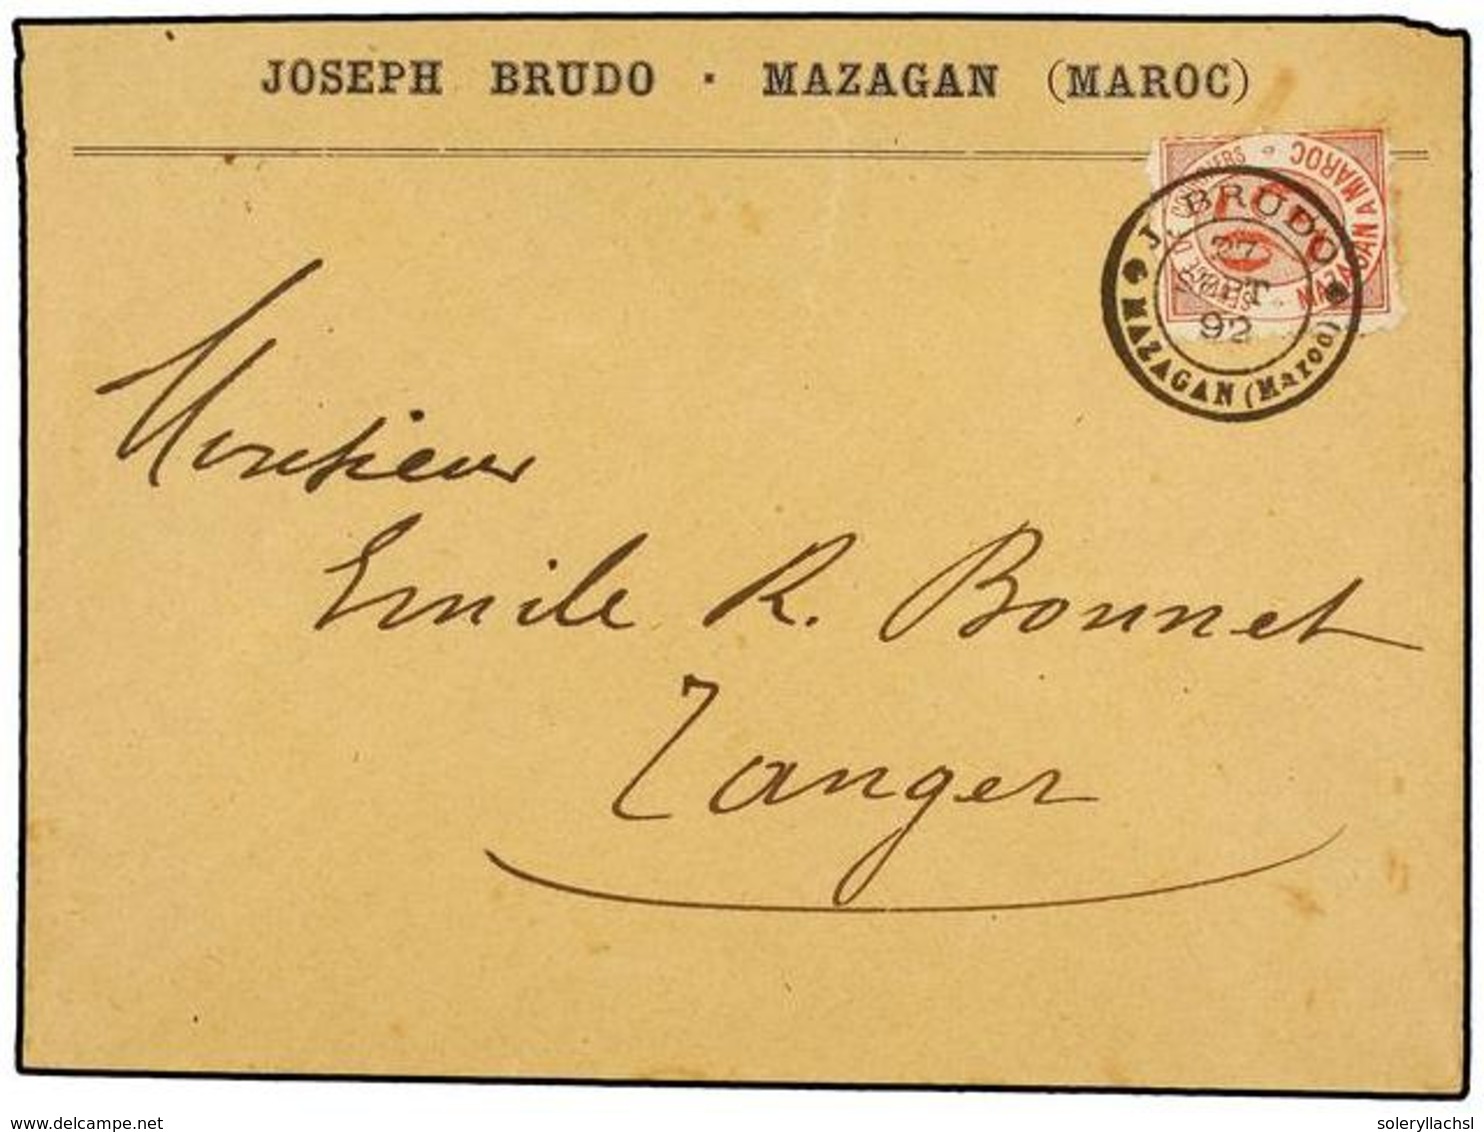 JOSEPH BRUDO · MAZAGAN (MAROC)
MAZAGAN A MAROC
J. BRUDO
27
SEPT
92
MAZAGAN (Maroc)
Monsieur
Emile R. Bonnet
Tanger
delcampe.net
soleryllachsl